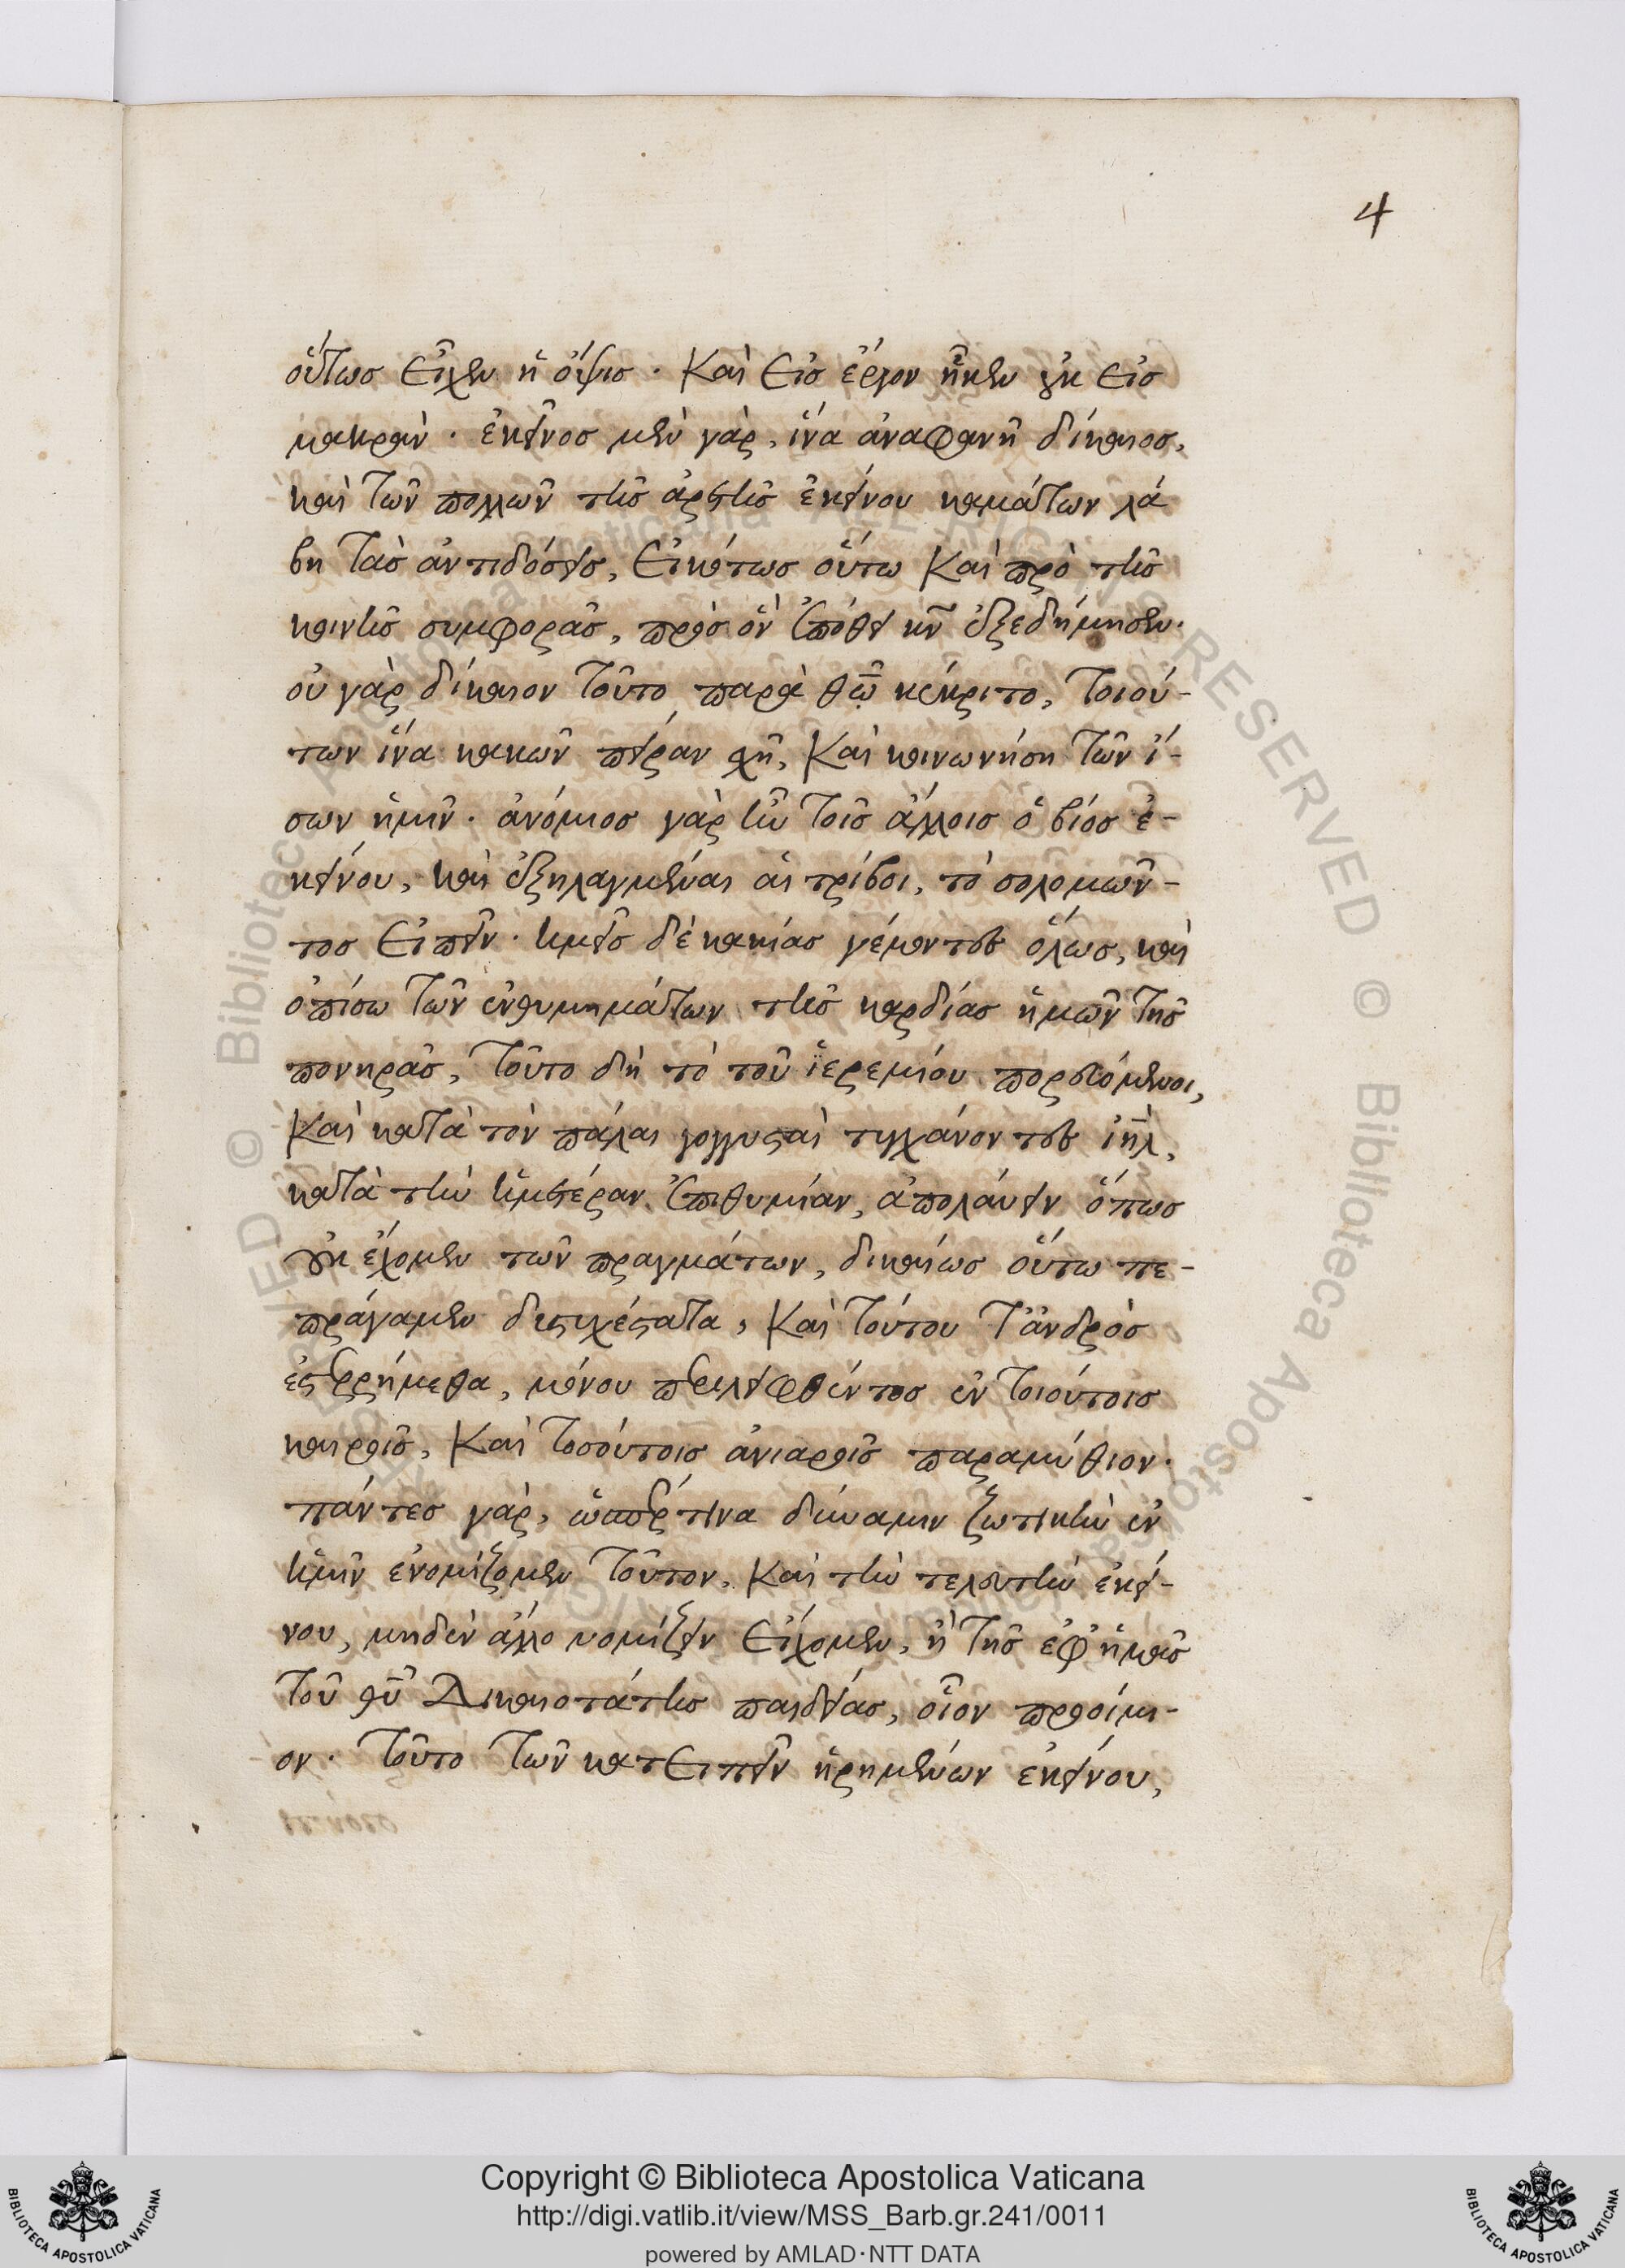 4
οὕτως εἶχεν ἡ ὄψις. καὶ εἰς ἔργον ἧκεν οὐκ εἰς
μακράν. ἐκεῖνος μὲν γὰρ, ἵνα ἀναφανῇ δίκαιος,
καὶ τῶν πολλῶν τῆς ἀρετῆς ἐκείνου καμάτων λά
βῃ τὰς ἀντιδόσεις, εἰκότως οὕτω καὶ πρὸ τῆς
κοινῆς συμφορᾶς, πρὸς ὃν ἐπόθει κν̄ ἐξεδήμησεν.
οὐ γὰρ δίκαιον τοῦτο παρὰ θω̄ κέκριτο, τοιού-
των ἵνα κακῶν πεῖραν σχῇ, καὶ κοινωνήσῃ τῶν ἴ-
σων ἡμῖν. ἀνόμοιος γὰρ ἦν τοῖς ἄλλοις ὁ βίος ἐ-
κείνου, καὶ ἐξηλαγμέναι αἱ τρίβοι, τὸ σολομῶν-
τος εἰπεῖν. ἡμεῖς δὲ κακίας γέμοντες ὅλως, καὶ
ὀπίσω τῶν ἐνθυμημάτων τῆς καρδίας ἡμῶν τῆς
πονηρᾶς, τοῦτο δὴ τὸ τοῦ ἱερεμίου πορευόμενοι,
καὶ κατὰ τὸν πάλαι γογγυσταὶ τυγχάνοντες ιη̄λ,
κατὰ τὴν ἡμετέραν ἐπιθυμίαν, ἀπολαύειν ὅπως
οὐκ ἔχομεν τῶν πραγμάτων, δικαίως οὕτω πε-
πράγαμεν δυστυχέστατα, καὶ τούτου τἀνδρὸς
ἐστερήμεθα, μόνου περιλειφθέντος ἐν τοιούτοις
καιροῖς, καὶ τοσούτοις ἀνιαροῖς παραμύθιον.
πάντες γὰρ, ὥσπερ τινα δύναμιν ζωτικὴν ἐν
ἡμῖν ἐνομίζομεν τοῦτον, καὶ τὴν τελευτὴν ἐκεί-
νου, μηδὲν ἄλλο νομίζειν εἴχομεν, ἢ τῆς ἐφ' ἡμᾶς
τοῦ θῡ δικαιοτάτης παιδείας, οἷον προοίμι-
ον. τοῦτο τῶν κατειπεῖν ᾑρημένων ἐκείνου,
Copyright © Biblioteca Apostolica Vaticana
http://digi.vatlib.it/view/MSS_Barb.gr.241/0011
powered by AMLAD·NTT DATA
BIBLIOTECA APOSTOLICA VATICANA
BIBLIOTECA APOSTOLICA VATICANA